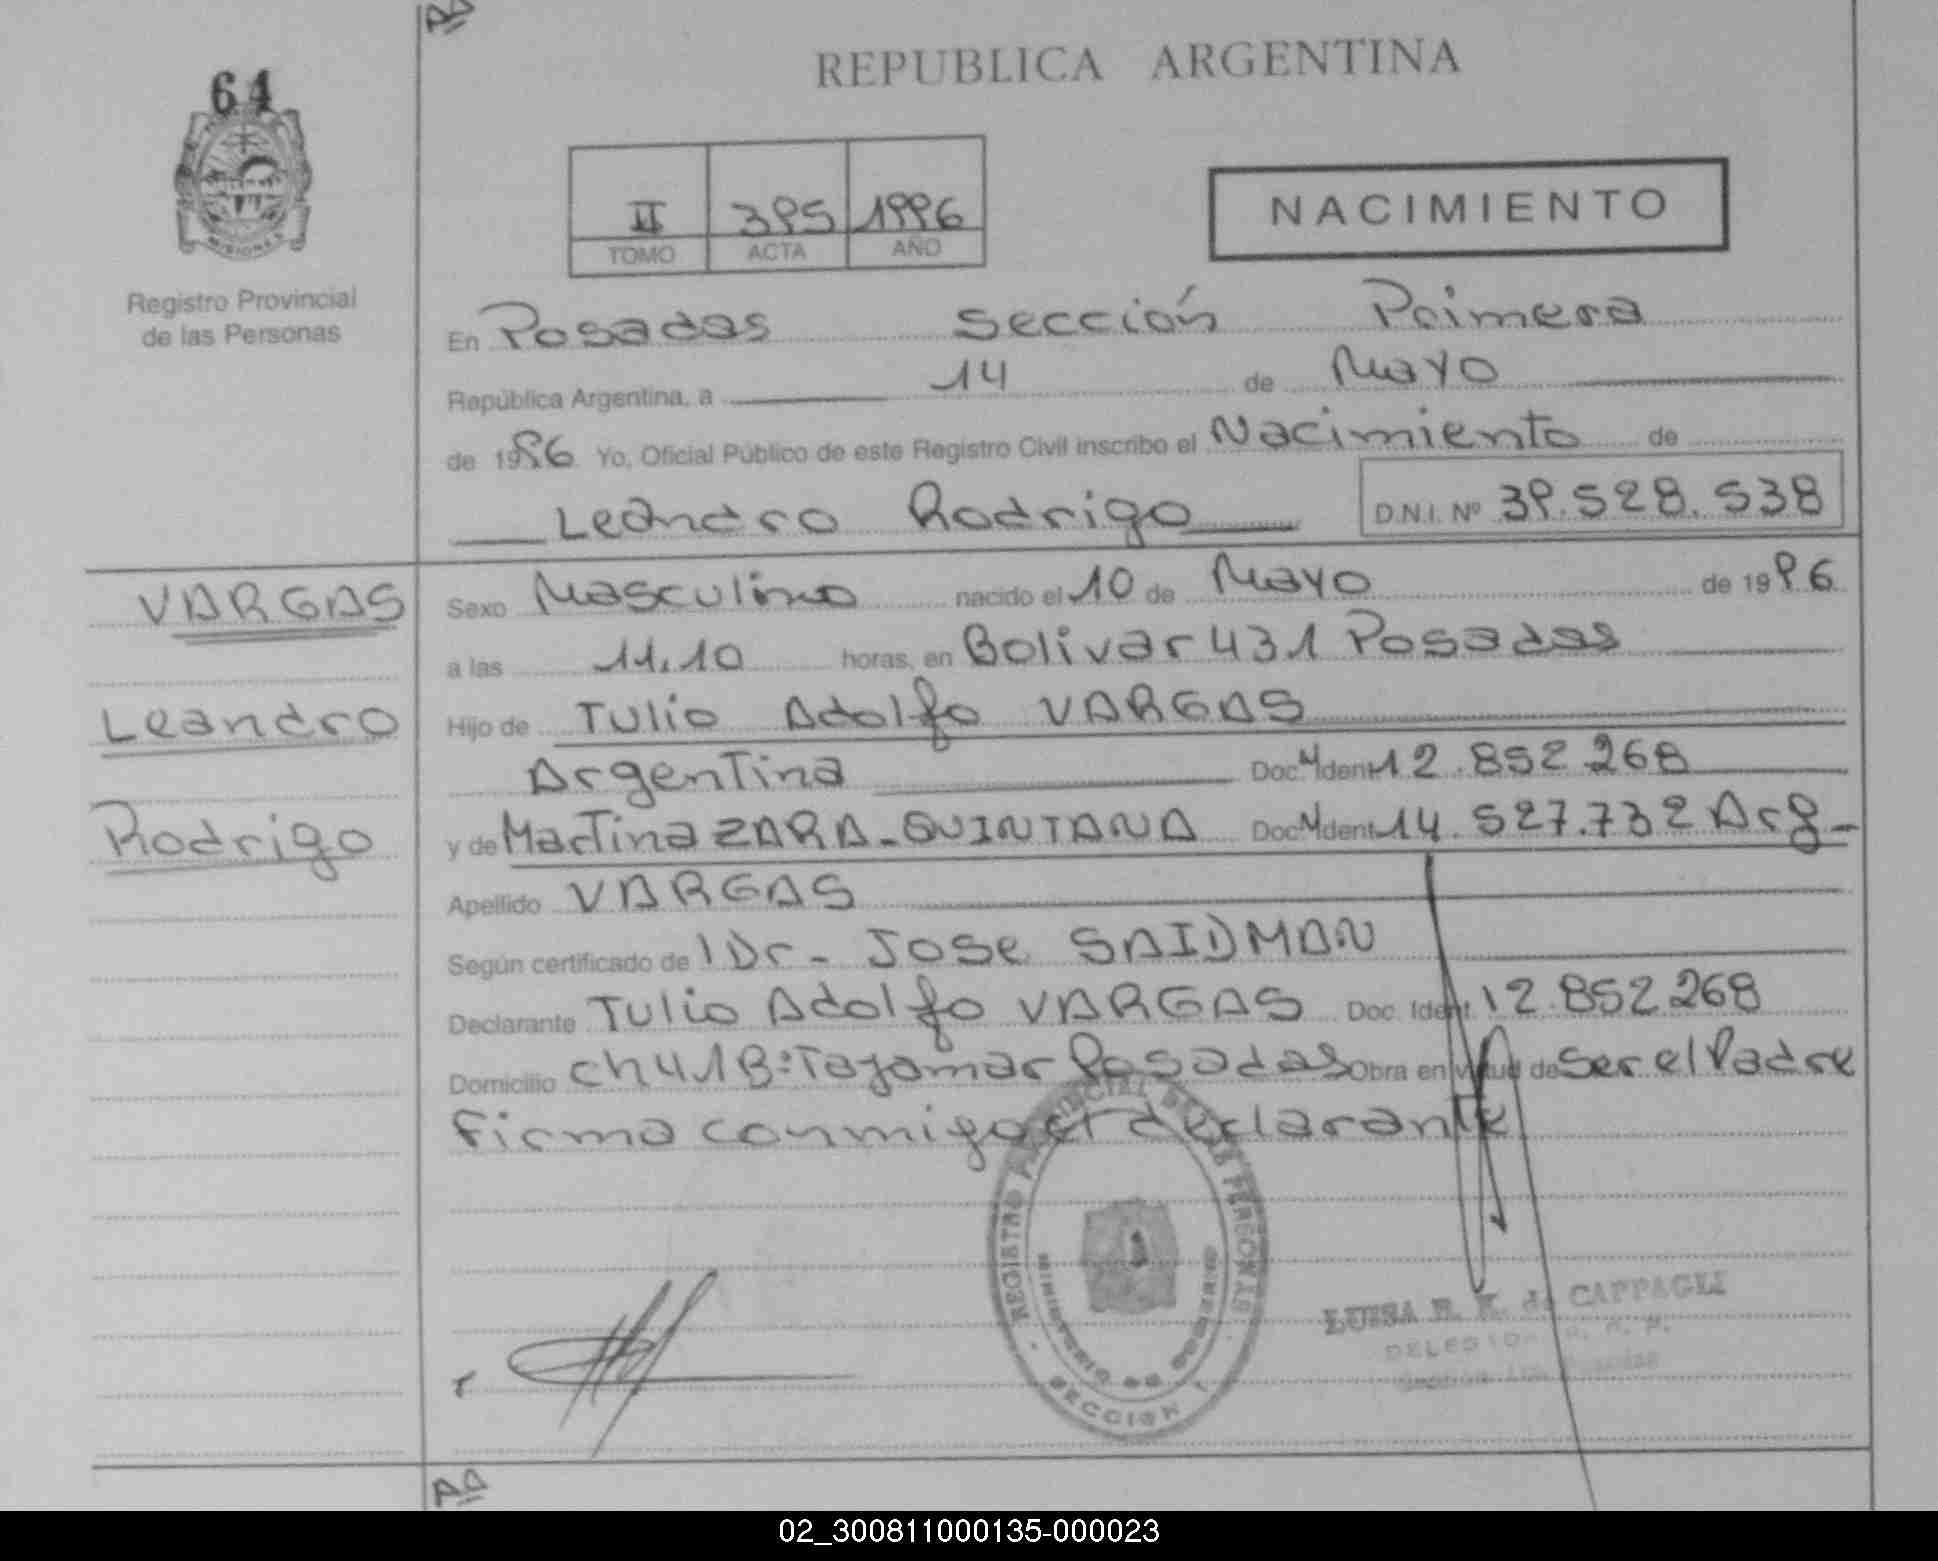 AA
REPUBLICA ARGENTINA
64
MISIONES
Registro Provincial
de las Personas
II 395 1996
TOMO ACTA AÑO
NACIMIENTO
En Posadas sección Primera
República Argentina, a 14 de Mayo
de 1996 Yo, Oficial Público de este Registro Civil inscribo el Nacimiento de
Leandro Rodrigo D.N.I. Nº 39.528.538
VARGAS
Leandro
Rodrigo
Sexo Masculino nacido el 10 de Mayo de 1996
a las 11.10 horas, en Bolivar 431 Posadas
Hijo de Tulio Adolfo VARGAS
Argentina Doc. Ident 12.852.268
y de Martina ZARA-QUINTANA Doc. Ident 14.527.732 Arg-
Apellido VARGAS
Según certificado de l Dr- Jose SAIDMAN
Declarante Tulio Adolfo VARGAS Doc. Ident. 12.852.268
Domicilio ch 41 B: Tajamar Posadas Obra en virtud de ser el Padre
Firma conmigo el declarante
REGISTRO PROVINCIAL DE LAS PERSONAS
MINISTERIO DE GOBIERNO
SECCION 1
LUISA de CAPPAGLI
AA
02_300811000135-000023